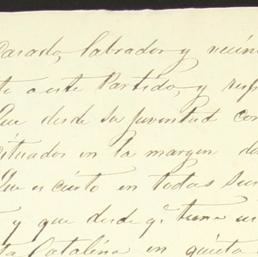 Casado, labrador y vecin
te a este Partido, y
Que desde su juventud con
situados en la margen d
Que es cierto en todas sus
y que desde qe. tiene u
ta Catalina en quieta